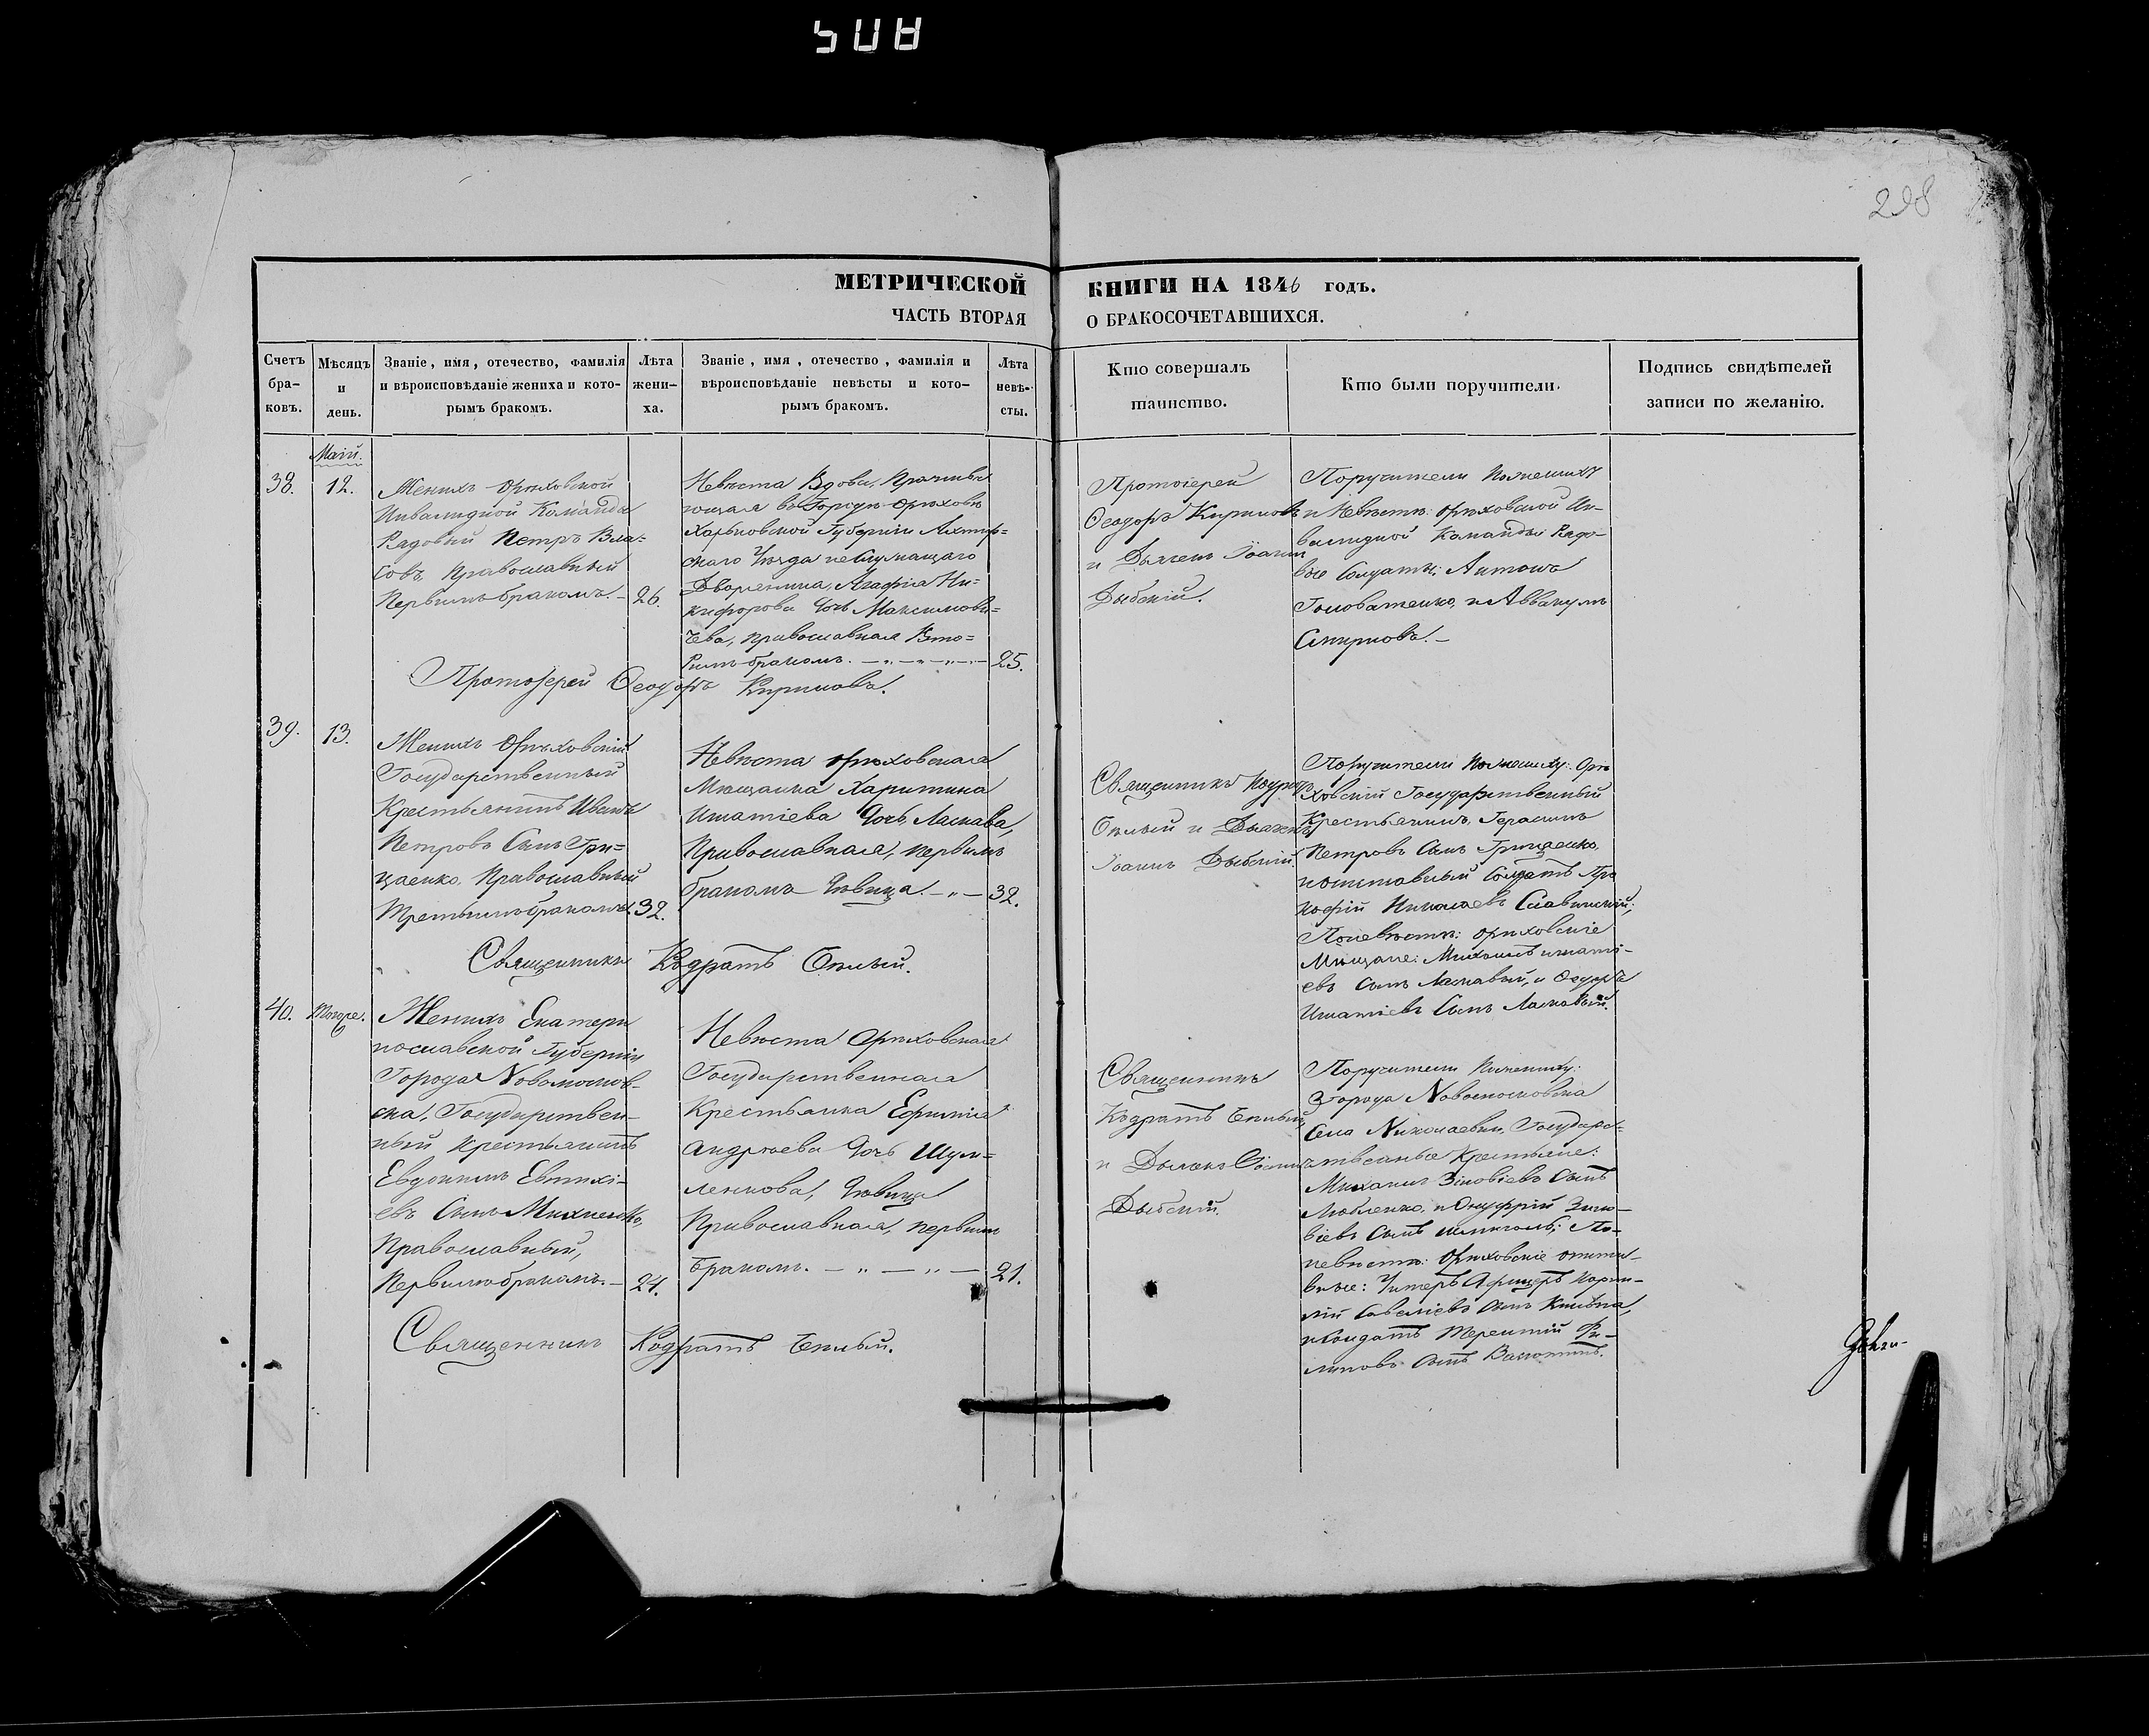 298
МЕТРИЧЕСКОЙ КНИГИ НА 1846 годъ.
ЧАСТЬ ВТОРАЯ О БРАКОСОЧЕТАВШИХСЯ.
Счетъ бра-ковъ.
Мѣсяцъ и день.
Званіе, имя, отечество, фамилія
и вѣроисповѣданіе жениха и кото-
рымъ бракомъ.
Лѣта жени-ха.
Званіе, имя, отечество, фамилія и
вѣроисповѣданіе невѣсты и кото-
рымъ бракомъ.
Лѣта невѣ-сты.
Кто совершалъ
таинство.
Кто были поручители.
Подпись свидѣтелей
записи по желанію.
Маій.
38.
12.
Женихъ Орѣховской
Инвалидной Команды
Рядовый Петръ Вла-
совъ Православный
Первимъ бракомъ.
26.
Невѣста Вдова, Прожива
ющая въ Городѣ Орѣховѣ
Харьковской Губерніи Ахтыр-
скаго Уѣзда неслужащаго
Дворянина, Агафія Ни-
кифорова дочь Максимови-
чева, православная Вто-
римъ бракомъ.
25.
Протоіерей
Ѳеодоръ Кириловъ
и Дьячекъ Іоаннъ
Дыбскій.
Поручители Поженихѣ
и Невѣстѣ: орѣховской Ин-
валидной Команды Рядо-
вые Солдаты: Антонъ
Головатенко, и Аввакумъ
Смирновъ.
Протоіерей Ѳеодоръ Кириловъ.
39.
13.
Женихъ Орѣховскій
Государственный
Крестьянинъ Иванъ
Петровъ Сынъ Гри-
щенко, Православный
Третьимъ бракомъ.
32.
Невѣста орѣховская
Мѣщанка Харитина
Игнатіева дочь Ласкава,
Православная, первимъ
бракомъ дѣвица.
32.
Священникъ Кодратъ
Бѣлый и Дьячекъ
Іоаннъ Дыбскій.
Поручители Пожениху: Орѣ
ховскій Государственный
Крестьянинъ, Герасимъ
Петровъ Сынъ Грищенко,
и отставный Солдатъ Про
кофій Николаевъ Славинскій;
Поневѣстѣ: орѣховскіе
Мѣщане: Михаилъ игнаті-
евъ Сынъ Ласкавый, и Ѳедоръ
Игнатіевъ Сынъ Ласкавый.
Священникъ Кодратъ Бѣлый.
40.
Тогоже.
Женихъ Екатери
нославской Губерніи
Города Новомосков-
ска, Государствен-
ный Крестьянинъ
Евдокимъ Евтихі-
евъ Сынъ Михненко,
Православный,
Первимъ бракомъ.
24.
Невѣста Орѣховская
Государственная
Крестьянка Ефимія
Андрѣева дочь Шум-
ленкова, дѣвица
Православная, первимъ
бракомъ.
21.
Священникъ
Кодратъ Бѣлый,
и Дьячекъ Іоаннъ
Дыбскій.
Поручители Поженику:
Города Новомосковска
Села Николаевки, Государс-
твенные Крестьяне:
Михаилъ Зиновіевъ Сынъ
и Онуфрій Зино-
віевъ Сынъ По-
невѣстѣ: Орѣховскіе отста-
вные: Унтеръ Афицеръ Корни-
лій Савеліевъ Сынъ
и Солдатъ Терентій Фи-
липовъ Сынъ
Священникъ Кодратъ Бѣлый.